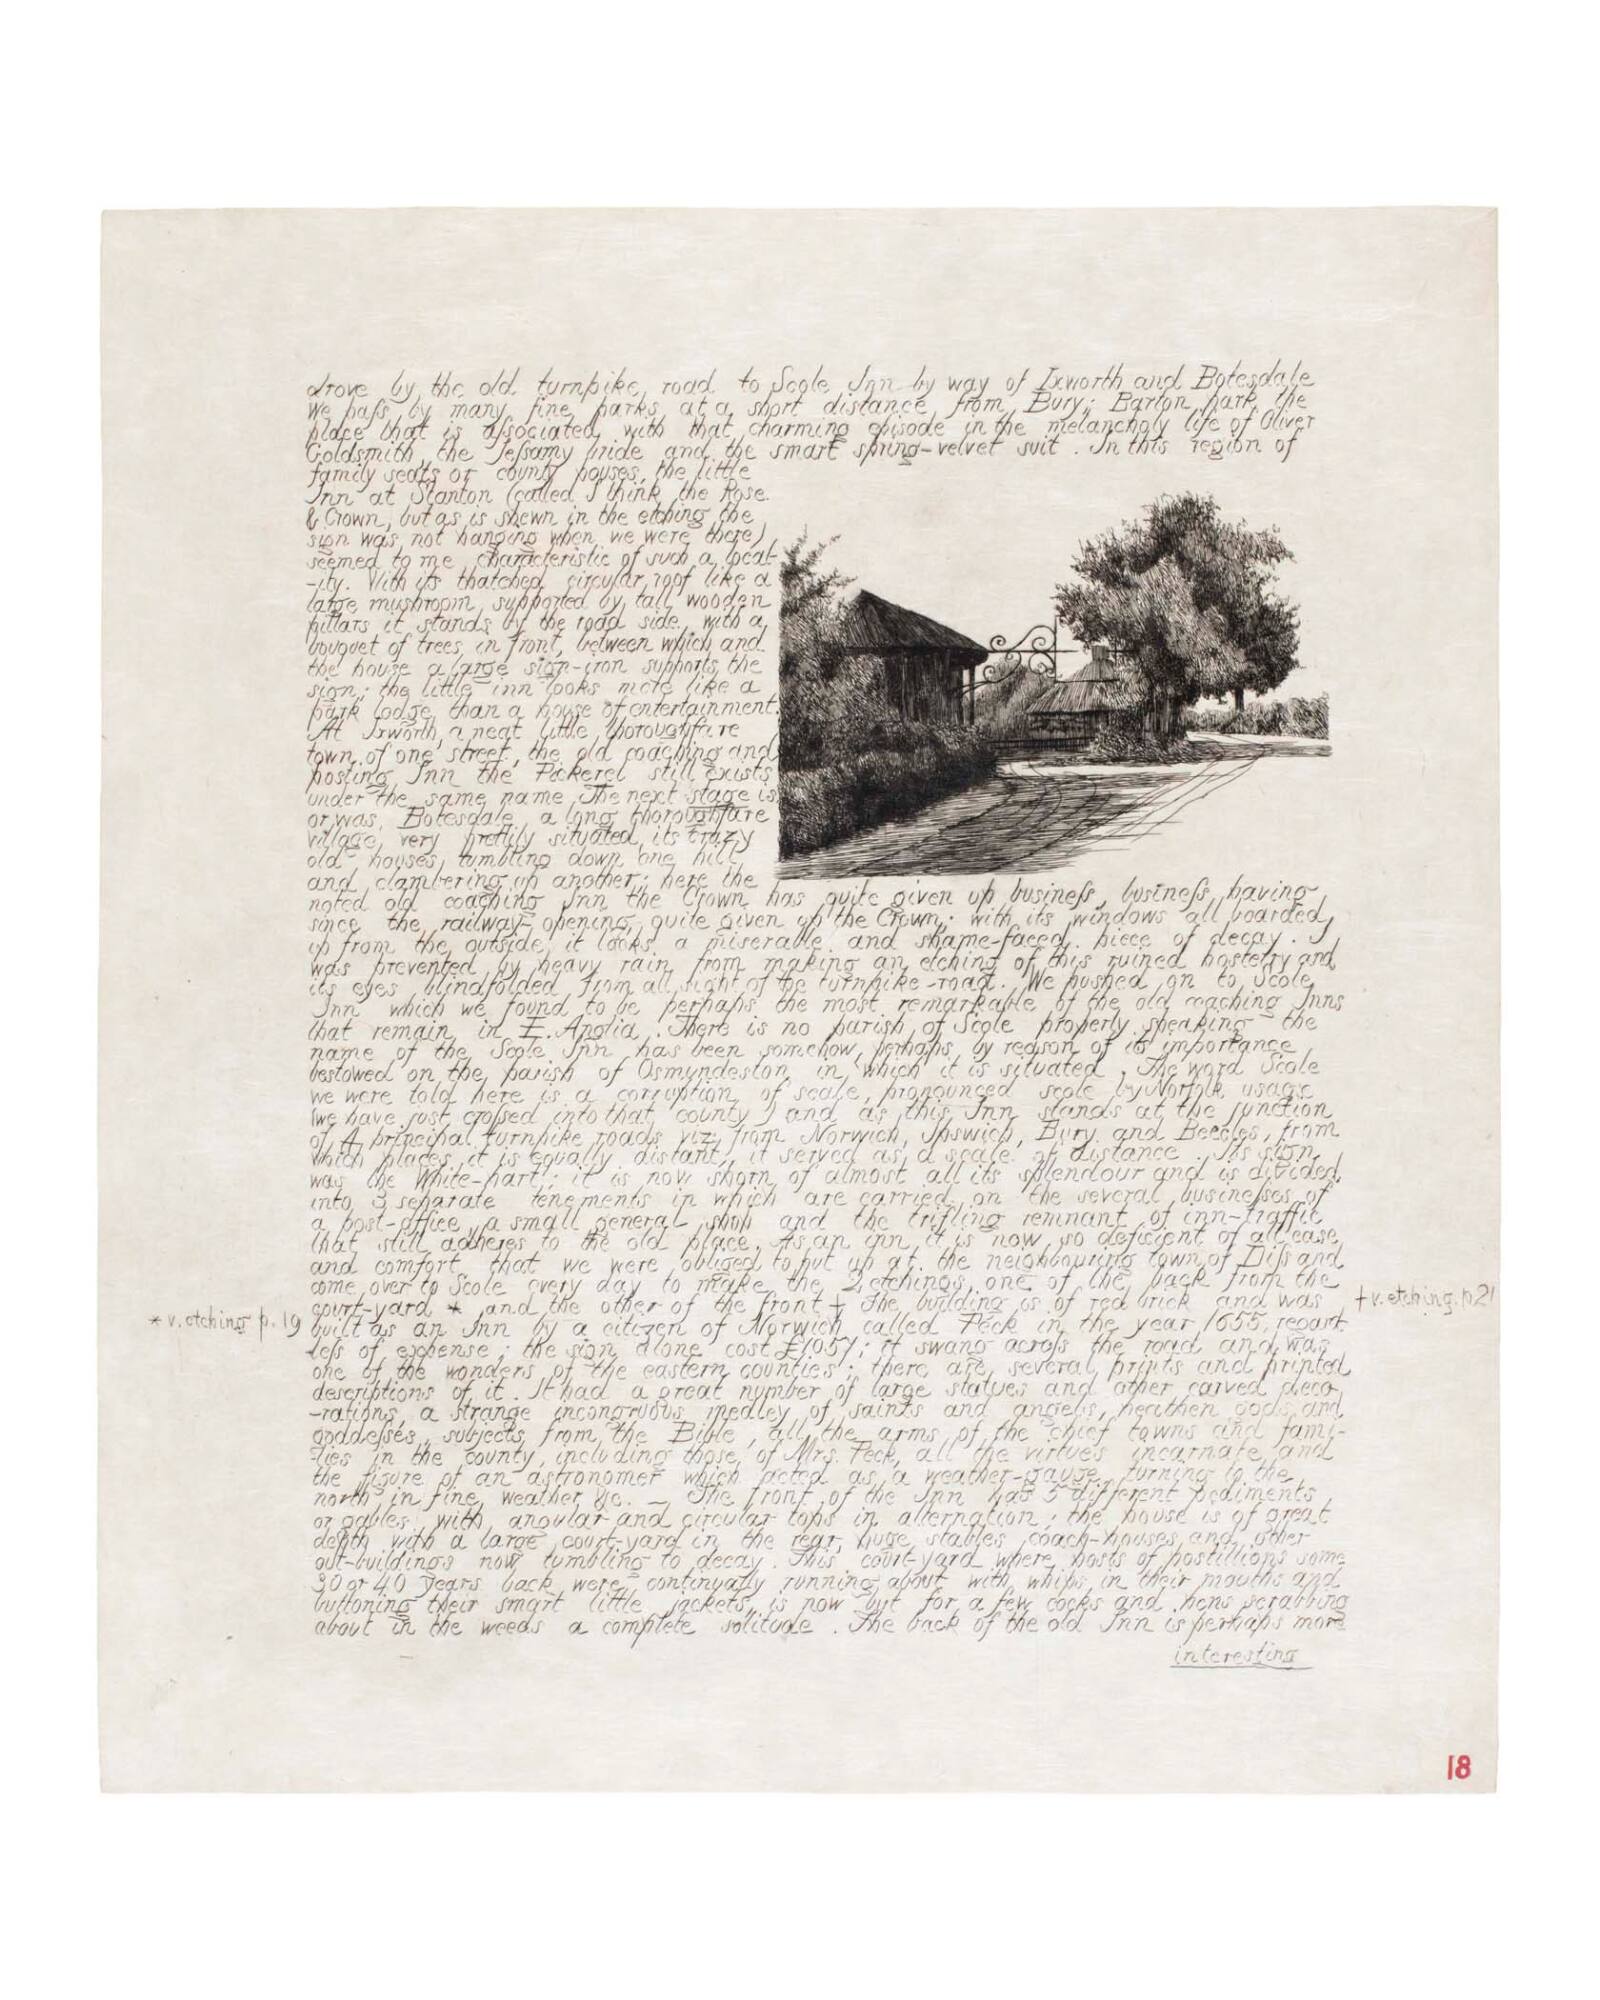 drove by the old turnpike road to Scole Inn by way of Ixworth and Botesdale
We paſs by many fine parks at a short distance from Bury; Barton park the
place that is aſsociated with that charming episode in the melancholy life of Oliver
Goldsmith, the Jeſsamy bride and the smart spring-velvet suit. In this region of
family seats or county houses, the little
Inn at Stanton (called I think the Rose
& Crown, but as is shewn in the etching the
sign was not hanging when we were there)
seemed to me characteristic of such a local-
-ity. With its thatched circular roof like a
large mushroom supported by tall wooden
pillars it stands by the road side with a
bouquet of trees in front, between which and
the house a large sign-iron supports the
sign; the little inn looks more like a
park lodge than a house of entertainment.
At Ixworth, a neat little thoroughfare
town of one street, the old coaching and
posting Inn the Pickerel still exists
under the same name. The next stage is
or was Botesdale a long thoroughfare
village, very prettily situated, its crazy
old houses tumbling down one hill
and clambering up another; here the
noted old coaching Inn the Crown has quite given up buſineſs, buſineſs having
since the railway-opening quite given up the Crown; with its windows all boarded
up from the outside, it looks a miserable and shame-faced piece of decay. I
was prevented by heavy rain from making an etching of this ruined hostelry and
its eyes blindfolded from all sight of the turnpike-road. We pushed on to Scole
Inn which we found to be perhaps the most remarkable of the old coaching Inns
that remain in E. Anglia. There is no parish of Scole properly speaking the
name of the Scole Inn has been somehow, perhaps by reason of its importance
bestowed on the parish of Osmundeston in which it is situated. The word Scole
we were told here is a corruption of scale, pronounced scole by Norfolk usage
(we have just croſsed into that county) and as this Inn stands at the junction
of 4 principal turnpike roads viz. from Norwich, Ipswich, Bury and Beccles, from
which places it is equally distant, it served as a scale of distance. Its sign
was the White-hart; it is now shorn of almost all its splendour and is divided
into 3 separate tenements in which are carried on the several busineſses of
a post-office, a small general shop and the trifling remnant of inn-traffic
that still adheres to the old place. As an inn it is now so deficient of all ease
and comfort that we were obliged to put up at the neighbouring town of Diſs and
come over to Scole every day to make the 2 etchings, one of the back from the
court-yard * and the other of the front † The building is of red brick and was
* v. etching p. 19
† v. etching. p 21
built as an Inn by a citizen of Norwich called Peck in the year 1655, regard-
leſs of expense; the sign alone cost £1057; it swang acroſs the road and was
one of the wonders of the eastern counties; there are several prints and printed
descriptions of it. It had a great number of large statues and other carved deco-
-rations, a strange incongruous medley of saints and angels, heathen gods and
goddeſses, subjects from the Bible, all the arms of the chief towns and fami-
-lies in the county, including those of Mrs. Peck, all the virtues incarnate and
the figure of an astronomer which acted as a weather-gauge turning to the
north in fine weather &c. — The front of the Inn has 5 different pediments
or gables with angular and circular tops in alternation; the house is of great
depth with a large court-yard in the rear, huge stables, coach-houses and other
out-buildings now tumbling to decay. This court-yard where hosts of postillions some
30 or 40 years back were continually running about with whips in their mouths and
buttoning their smart little jackets, is now but for a few cocks and hens scrabbing
about in the weeds a complete solitude. The back of the old Inn is perhaps more
interesting
18